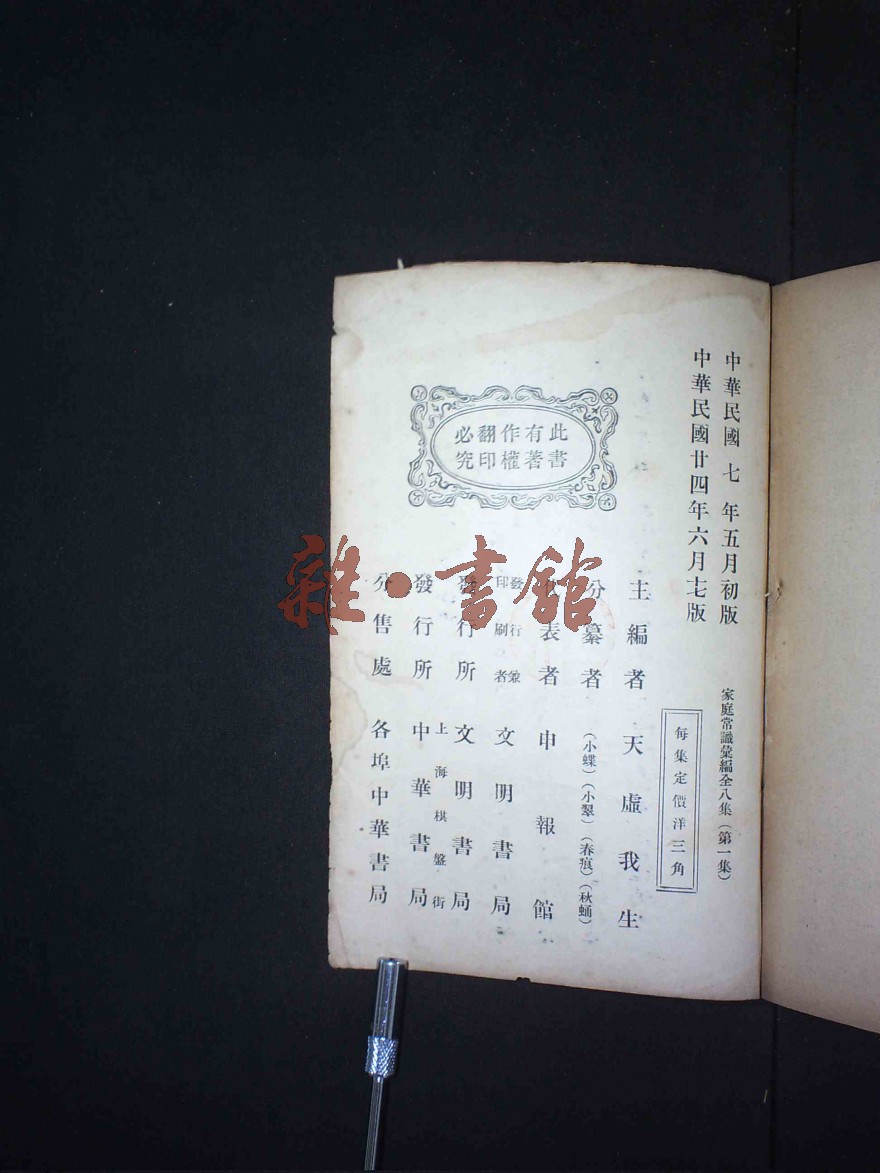 中華民國　七　年五月初版
中華民國廿四年六月七版
家庭常識彙編全八集（第一集）
每集定價洋三角
主編者　天虛我生
分纂者　（小蝶）（小翠）（春痕）（秋蛹）
表者　申報館
發行兼
印刷者　文明書局
發行所　文明書局
上海棋盤街
發行所　中華書局
分售處　各埠中華書局
此書有著作權翻印必究
雜·書館